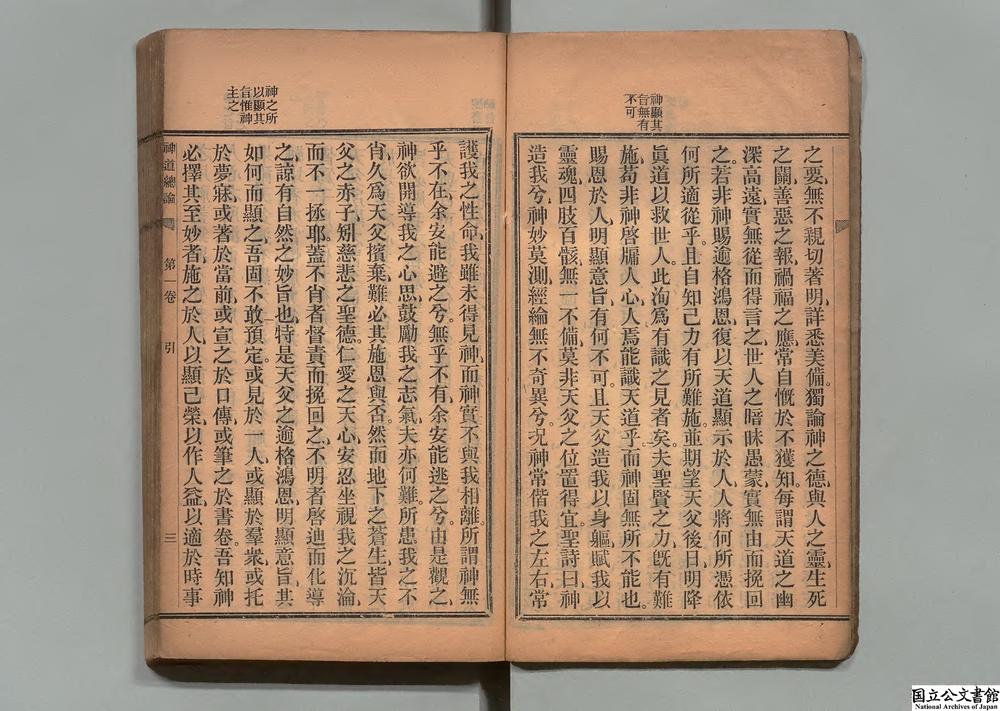 神顯其
旨無有
不可
之要、無不親切著明、詳悉美備。獨論神之德、與人之靈、生死
之關、善惡之報、禍福之應、常自慨於不獲知、每謂天道之幽
深高遠、實無從而得言之、世人之暗昧愚蒙、實無由而挽回
之。若非神賜逾格鴻恩、復以天道顯示於人、人將何所憑依
何所適從乎。且自知己力有所難施、並期望天父後日明降
眞道以救世人、此洵爲有識之見者矣。夫聖賢之力、旣有難
施、苟非神啓牖人心、人焉能識天道乎。而神固無所不能也。
賜恩於人、明顯意旨、有何不可。且天父造我以身軀、賦我以
靈魂、四肢百骸、無一不備、莫非天父之位置得宜。聖詩曰、神
造我兮、神妙莫測、經綸無不奇異兮。況神常偕我之左右、常
神之所
以顯其
旨惟神
主之
護我之性命、我雖未得見神、而神實不與我相離。所謂神無
乎不在、余安能避之兮。無乎不有、余安能逃之兮。由是觀之、
神欲開導我之心思、鼓勵我之志氣、夫亦何難。所患我之不
肖、久爲天父擯棄、難必其施恩與否。然而地下之蒼生、皆天
父之赤子、矧慈悲之聖德、仁愛之天心、安忍坐視我之沉淪、
而不一拯耶。蓋不肖者督責而挽回之、不明者啓迪而化導
之、諒有自然之妙旨也。特是天父之逾格鴻恩、明顯意旨、其
如何而顯之、吾固不敢預定。或見於一人、或顯於羣衆、或托
於夢寐、或著於當前、或宣之於口傳、或筆之於書卷。吾知神
必擇其至妙者、施之於人、以顯己榮、以作人益、以適於時事
神道總論 第一卷 引 三
国立公文書館
National Archives of Japan